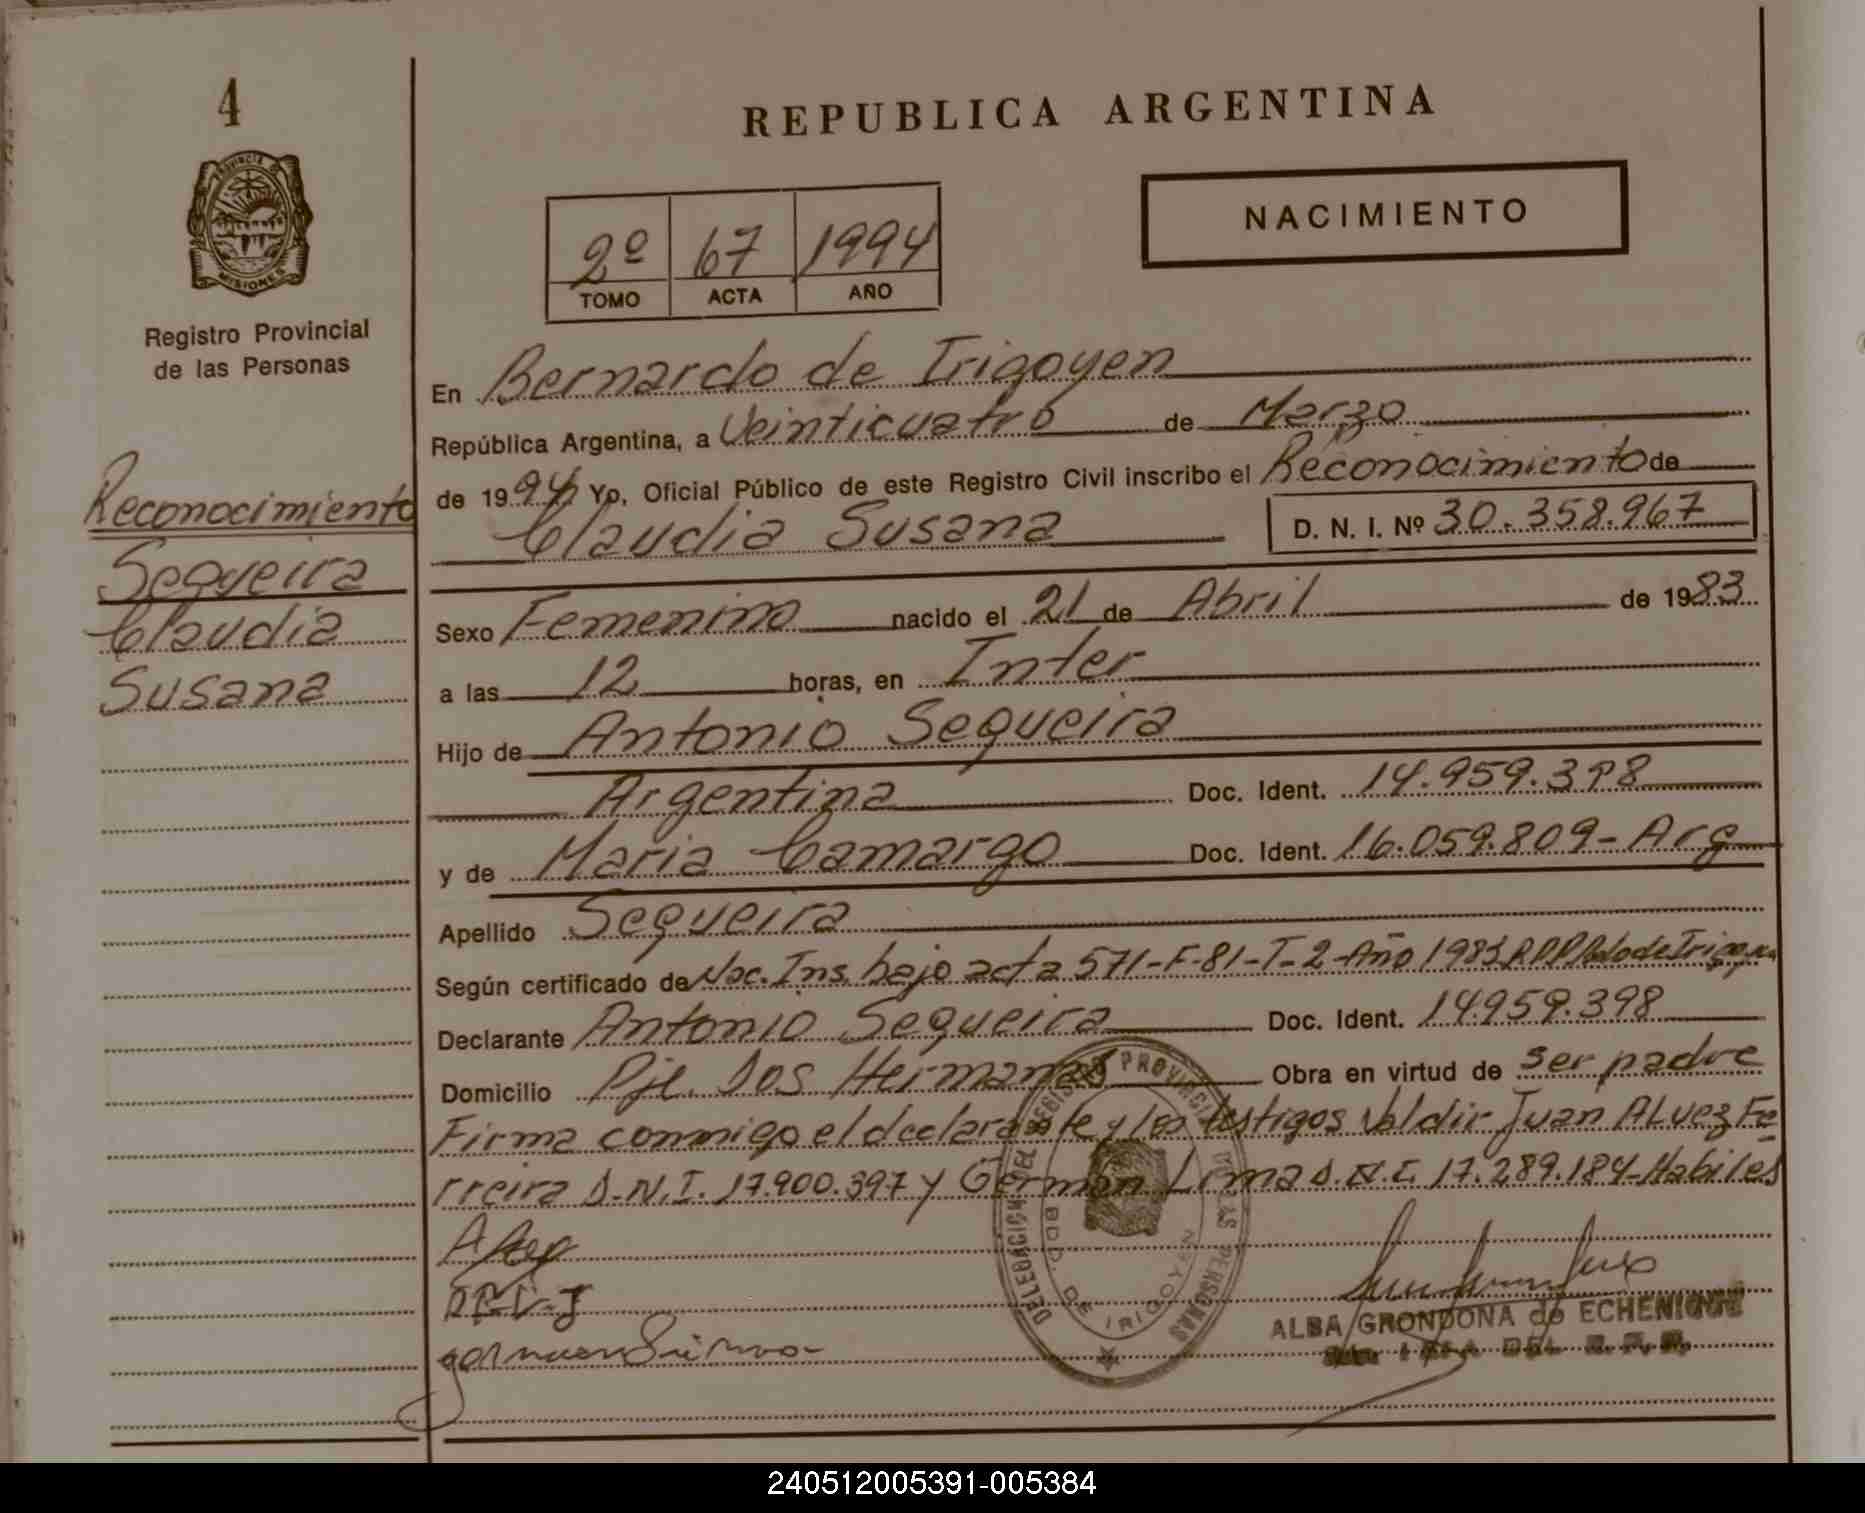 4
PROVINCIA DE
MISIONES
Registro Provincial
de las Personas
Reconocimiento
Sequeira
Claudia
Susana
REPUBLICA ARGENTINA
2º 67 1994
TOMO ACTA AÑO
NACIMIENTO
En Bernardo de Irigoyen
República Argentina, a Veinticuatro de Marzo
de 1994 Yo, Oficial Público de este Registro Civil inscribo el Reconocimiento de
Claudia Susana D. N. I. Nº 30.358.967
Sexo Femenino nacido el 21 de Abril de 1983
a las 12 horas, en Inter
Hijo de Antonio Sequeira
Argentina Doc. Ident. 14.959.398
y de Maria Camargo Doc. Ident. 16.059.809- Arg
Apellido Sequeira
Según certificado de Nac. Ins. bajo acta 571-F-81-T-2-Año 1983 Bdo de Irigoyen
Declarante Antonio Sequeira Doc. Ident. 14959.398
Domicilio Pje. Dos Hermanas Obra en virtud de ser padre
Firma conmigo el declarante y los testigos Valdir Juan Alvez Fe
rreira D.N.I. 17.900.397 y German Lima D.N.I. 17.289.184-Habiles
DELEGACION DEL REGISTRO PROVINCIAL DE LAS PERSONAS
BDO. DE IRIGOYEN
ALBA GRONDONA de ECHENIQUE
240512005391-005384